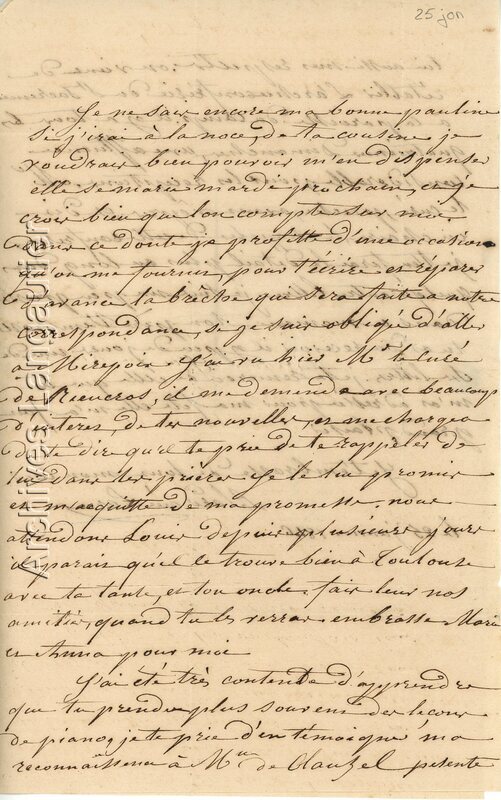 25 jon
Je ne sais encore ma bonne pauline
si j'irai à la noce, de ta cousine je
voudrais bien pouvoir m'en dispenser
elle se marie mardi prochain, et je
crois bien que l'on compte sur moi,
dans ce doute je profitte d'une occasion
qu'on me fournis, pour t'écrire et réparer
d'avance la brêche que sera faite a notre
correspondance, si je suis obligée d'aller
a Mirepoix. J'ai vu hier Mr le curé
de Rieucros, il me demanda avec beaucoup
d'interes, de tes nouvelles, et me chargea
de te dire qu'il te prie de te rappeler de
lui dans tes prières je le lui promis
et m'acquitte de ma promesse, nous
attendons Louis depuis plusieurs jours
il parais qu'il ce trouve bien à Toulouse
avec ta tante, et ton oncle, fais leur nos
amitiés, quand tu les verras embrasse Maria
et Anna pour moi
J'ai été très contente d'apprendre
que tu prendes plus souvent des leçons
de piano, je te prie d'en temoigné ma
reconnaissence à Mme de Clauzel presente
Archives Langautier